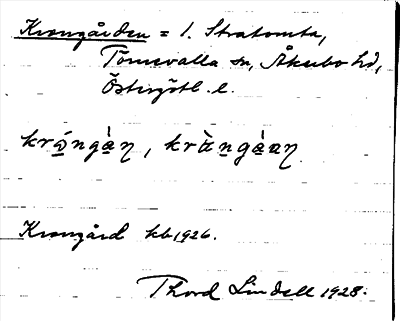 Krongården = 1. Stratomta,
Törnevalla sn, Åkerbo hd,
Östergötl. l.
krǫ́ngàn, kràngàan
Krongård kb 1926.
Thord Lindell 1928.